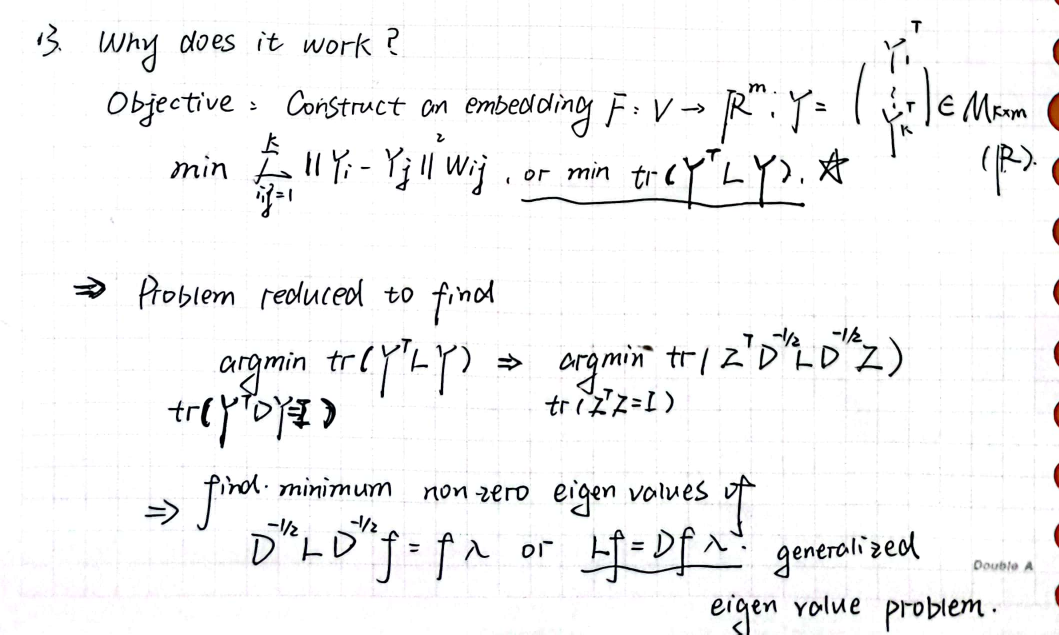 13. Why does it work?
Objective: Construct an embedding F: V → ℝ^m. Y = (Y_1^T ⋮ Y_k^T) ∈ M_{k×m}(ℝ).
min Σ_{i,j=1}^k ||Y_i - Y_j||^2 W_ij, or min tr(Y^T L Y). ☆
⇒ Problem reduced to find
argmin tr(Y^T L Y) ⇒ argmin tr(Z^T D^{-1/2} L D^{-1/2} Z)
tr(Y^T D Y = I) tr(Z^T Z = I)
⇒ find. minimum non-zero eigen values of
D^{-1/2} L D^{-1/2} f = f λ or Lf = Df λ. generalized
eigen value problem.
Double A